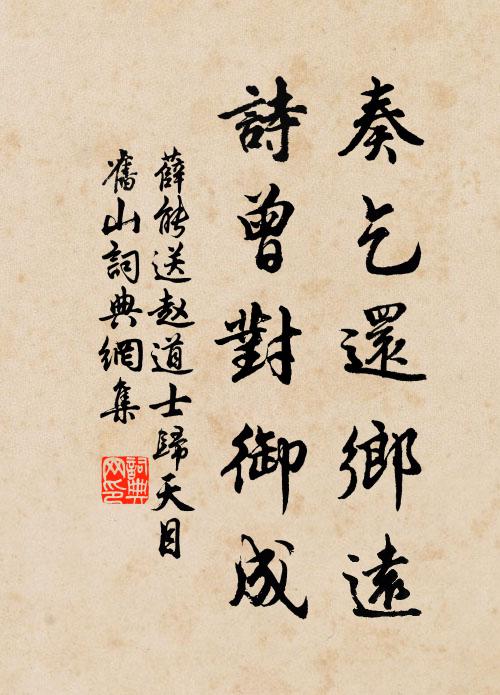 奏乞還鄉遠
詩曾對御成
薛能送赵道士歸天目
舊山詞典網集
詞典网印